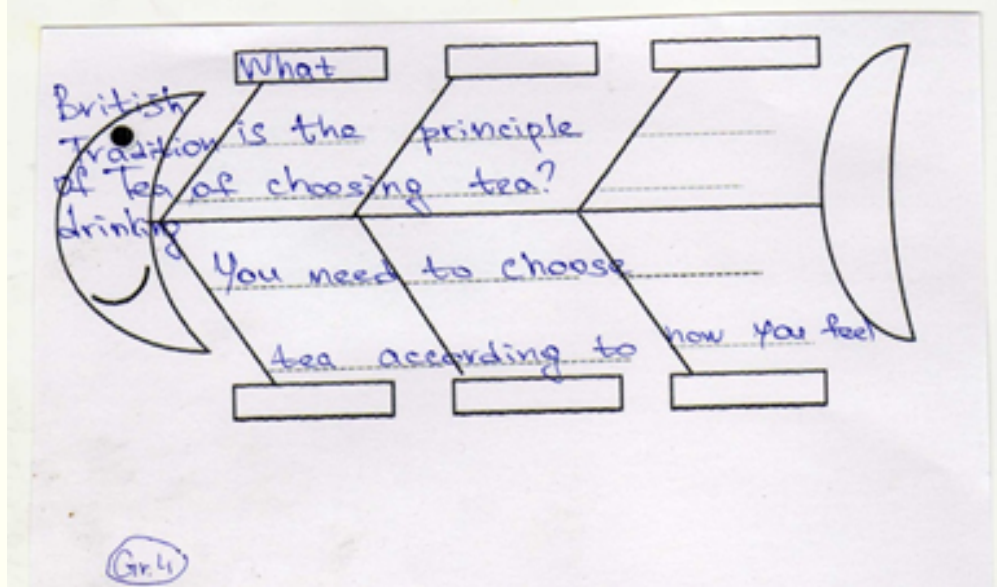 British
Tradition
of Tea
drinking
What
is the principle
of choosing tea?
You need to choose
tea according to how you feel
Gr.4